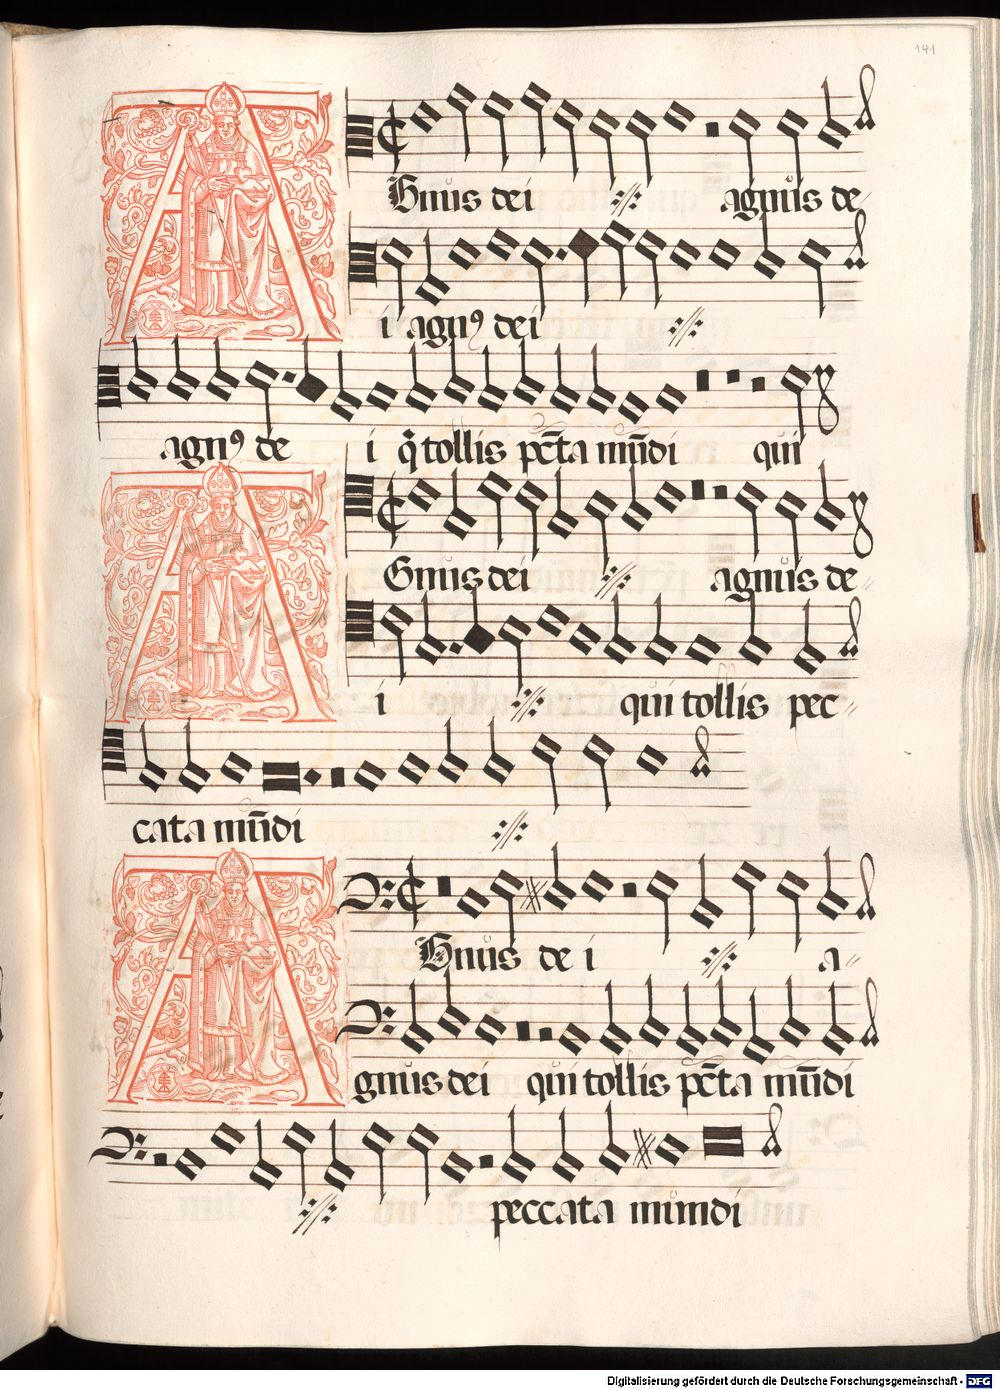 141
AGnus dei ·//· agnus de-
i agnꝰ dei ·//·
agnꝰ de i q̃ tollis pc̃ta mũdi qui
AGnus dei ·//· agnus de-
i ·//· qui tollis pec-
cata mũdi ·//·
AGnus de i ·//· a-
gnus dei qui tollis pc̃ta mũdi
·//· peccata mundi
Digitalisierung gefördert durch die Deutsche Forschungsgemeinschaft - DFG